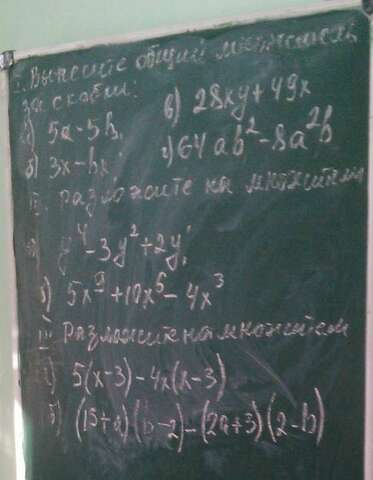 I. Вынесите общий множитель
за скобки:
а) 5a-5b;
в) 28xy+49x
б) 3x-bx;
г) 64ab²-8a²b
II. разложите на множители
а) y⁴-3y²+2y;
б) 5x⁹+10x⁶-4x³
III разложите на множители
а) 5(x-3)-4x(x-3)
б) (15+a)(b-2)-(2a+3)(2-b)